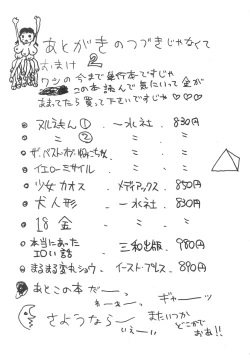 あとがきのつづきじゃなくて
おまけ
ワシの今まで単行本ですじゃ
この本読んで気にいって金が
あまってたら買って下さいですじゃ♡♡♡
◎ ヌルえもん① ・ 一水社 . 830円
◎ 〃 ② . 〃 . 〃
◎ ザ・ベスト・オブ・ . 〃 . 〃
◎ イエローミサイル . 〃 . 〃
◎ 少女カオス . メディアックス . 850円
◎ 犬人形 . 一水社 . 830円
◎ 18金 . 〃 . 〃
◎ 本当にあったエロい話 . 三和出版 . 980円
◎ まるまる変丸ショウ . イースト・プレス . 890円
◎ あとこの本だーっ
わーぉーっ ギャーーッ
さようならー またいつか
いぇーい どこかで
おお!!